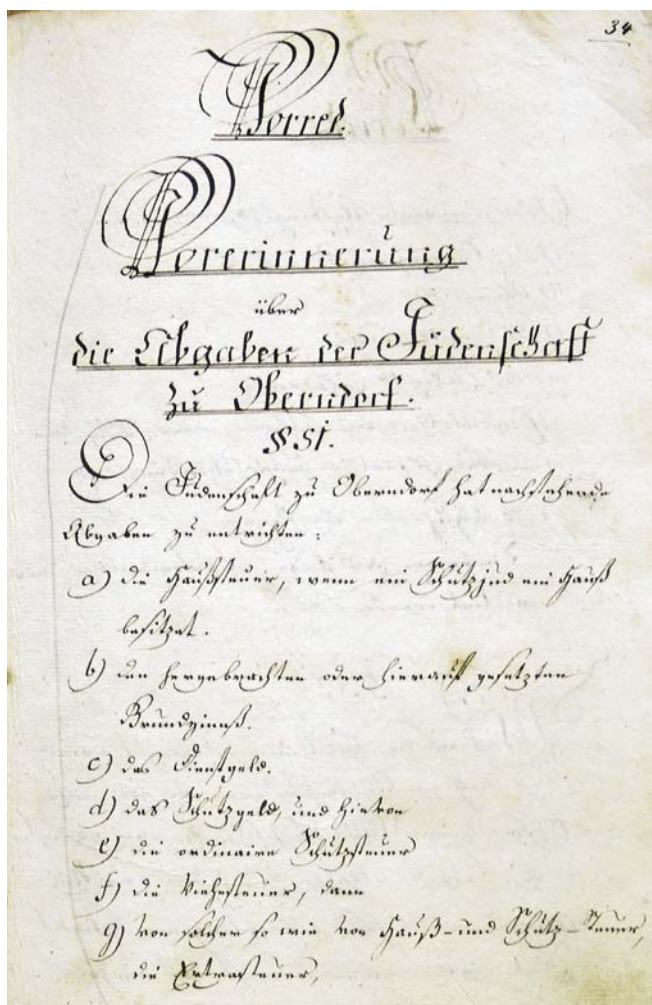 34
Vorred.
Vorerinnerung
über
die Abgaben der Judenschaft
zu Oberndorf.
§ 51.
Die Judenschaft zu Oberndorf hat nachstehende
Abgaben zu entrichten:
a) die Haußsteuer, wenn ein Schutzjud ein Hauß
besitzet.
b) den hergebrachten oder hierauf gesetzten
Grundzinnß.
c) das Dienstgeld.
d) das Schutzgeld, und hievon
e) die ordinaire Schutzsteuer
f) die Viehsteuer, dann
g) von solcher so wie von Hauß- und Schutz-Steuer,
die Extrasteuer,